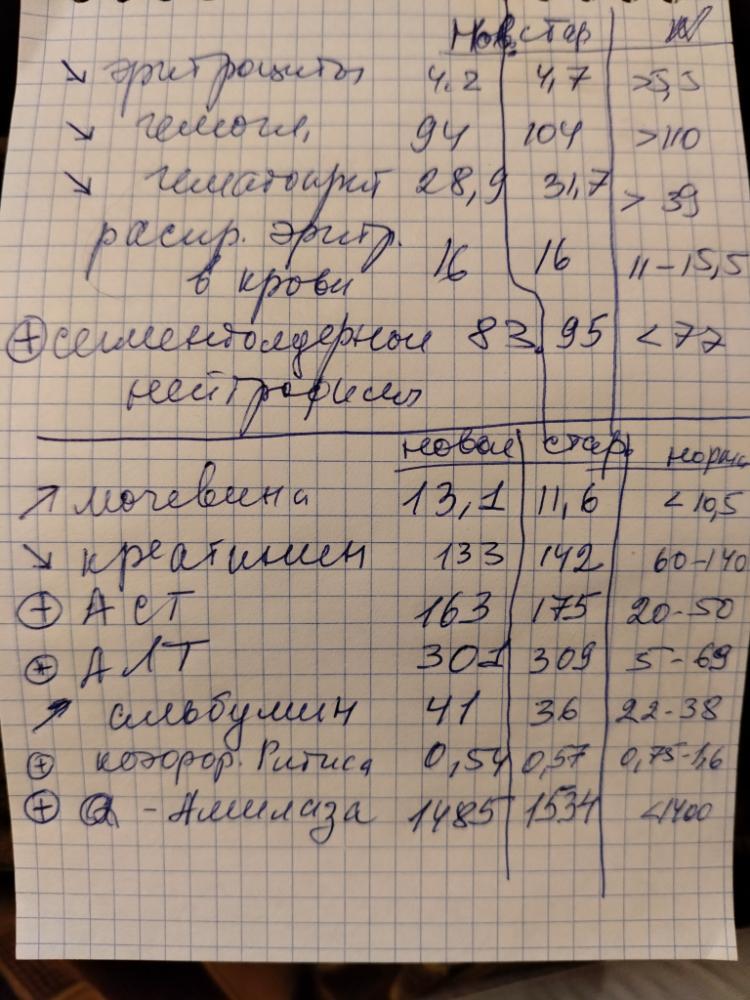 Нов. стар N
↘ эритроциты 4.2 4,7 >5,5
↘ гемогл. 94 104 >110
↘ гематокрит 28,9 31,7 > 39
расир. эритр. 16 16 11-15,5
в крови
+ сегментоядерные 83. 95 <77
нейтрофилы
новая стар. норма
↗ мочевина 13,1 11,6 <10,5
↘ креатинин 133 142 60-140
+ АСТ 163 175 20-50
+ АЛТ 301 309 5-69
↗ альбумин 41 36 22-38
+ Ритиса 0,54 0,57 0,75-1,6
+ α-Амилаза 1485 1534 <1400